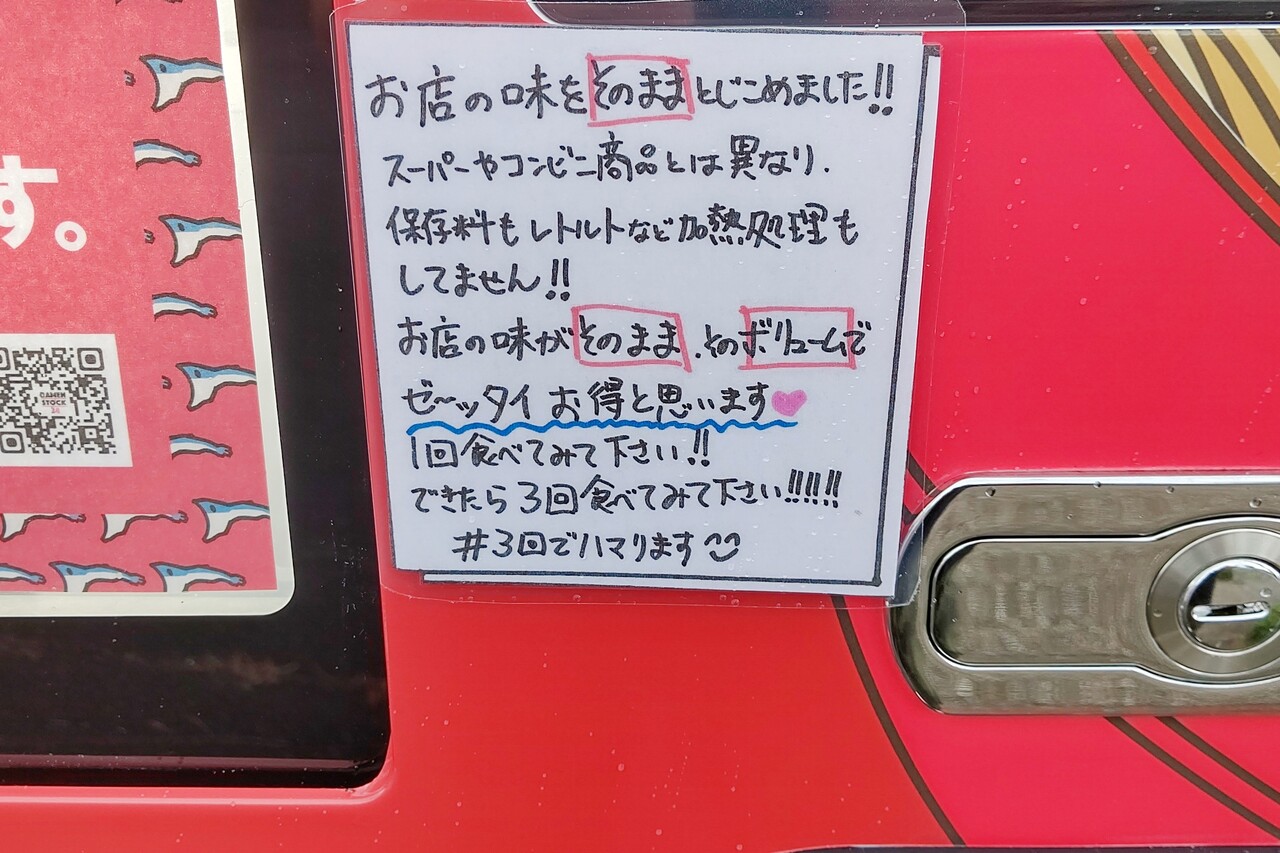 す。
お店の味をそのままとじこめました!!
スーパーやコンビニ商品とは異なり.
保存料もレトルトなど加熱処理も
してません!!
お店の味がそのまま.このボリュームで
ゼ〜ッタイお得と思います
1回食べてみて下さい!!
できたら3回食べてみて下さい!!!!!!
#3回でハマります
RAMEN
STOCK
24